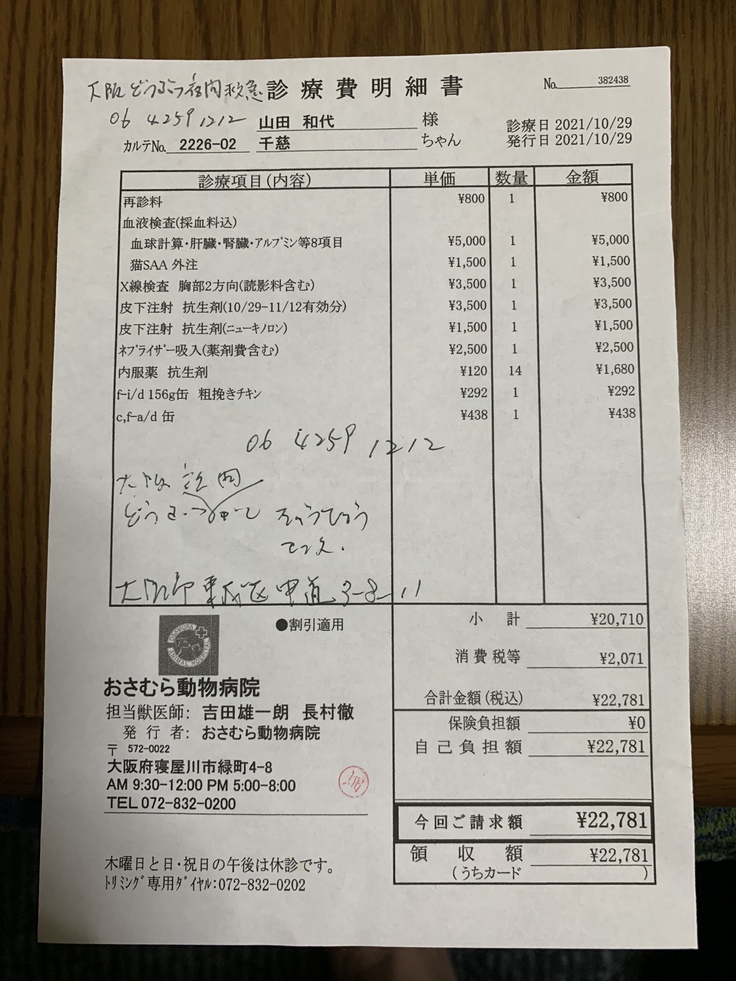 大阪どうぶつ夜間救急 診療費明細書 No. 382438
06 4259 1212 山田 和代 様 診療日 2021/10/29
カルテNo. 2226-02 千慈 ちゃん 発行日 2021/10/29
診療項目(内容) 単価 数量 金額
再診料 ¥800 1 ¥800
血液検査(採血料込)
血球計算・肝臓・腎臓・アルブミン等8項目 ¥5,000 1 ¥5,000
猫SAA 外注 ¥1,500 1 ¥1,500
X線検査 胸部2方向(読影料含む) ¥3,500 1 ¥3,500
皮下注射 抗生剤(10/29-11/12有効分) ¥3,500 1 ¥3,500
皮下注射 抗生剤(ニューキノロン) ¥1,500 1 ¥1,500
ネブライザー吸入(薬剤費含む) ¥2,500 1 ¥2,500
内服薬 抗生剤 ¥120 14 ¥1,680
f-i/d 156g缶 粗挽きチキン ¥292 1 ¥292
c,f-a/d 缶 ¥438 1 ¥438
06 4259 1212
大阪
どう
大阪市東成区中道3-8-11
●割引適用
小計 ¥20,710
消費税等 ¥2,071
合計金額(税込) ¥22,781
保険負担額 ¥0
自己負担額 ¥22,781
今回ご請求額 ¥22,781
領収額 ¥22,781
(うちカード )
おさむら動物病院
担当獣医師: 吉田雄一朗 長村徹
発行者: おさむら動物病院
〒 572-0022
大阪府寝屋川市緑町4-8
AM 9:30-12:00 PM 5:00-8:00
TEL 072-832-0200
木曜日と日・祝日の午後は休診です。
トリミング専用ダイヤル:072-832-0202